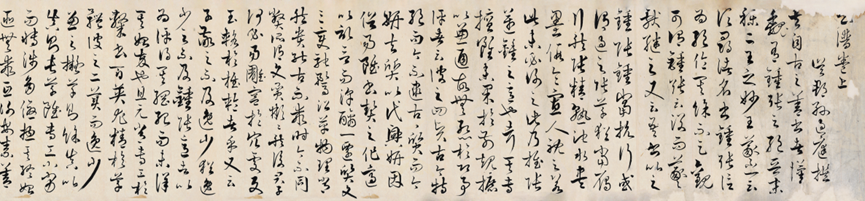 書譜卷上
吳郡孫過庭撰
夫自古之善書者漢
魏有鍾張之絕晉末
稱二王之妙王羲之云
頃尋諸名書鍾張信
為絕倫其餘不足觀
可謂鍾張云沒而羲
獻繼之又云吾書比之
鍾張鍾當抗行或
謂過之張草猶當雁
行然張精熟池水盡
墨假令寡人耽之若
此未必謝之此乃推張
邁鍾之意也考其專
擅雖未果於前規摭
以兼通故無慚於即事
評者云彼之四賢古今特
絕而今不逮古古質而今
妍夫質以代興妍因
俗易雖書契之作適
以記言而淳醨一遷質文
三變馳鶩沿革物理常
然貴能古不乖時今不同
弊所謂文質彬彬然後君子
何必易雕宮於穴處反
玉輅於椎輪者乎又云
子敬之不及逸少猶逸
少之不及鍾張意者以
為評得其綱紀而未詳
其始卒也且元常專工於
隸書伯英尤精於草
體彼之二美而逸少
兼之擬草則餘真比
真則長草雖專工小劣
而博涉多優總其終始
匪無乖互謝安素善